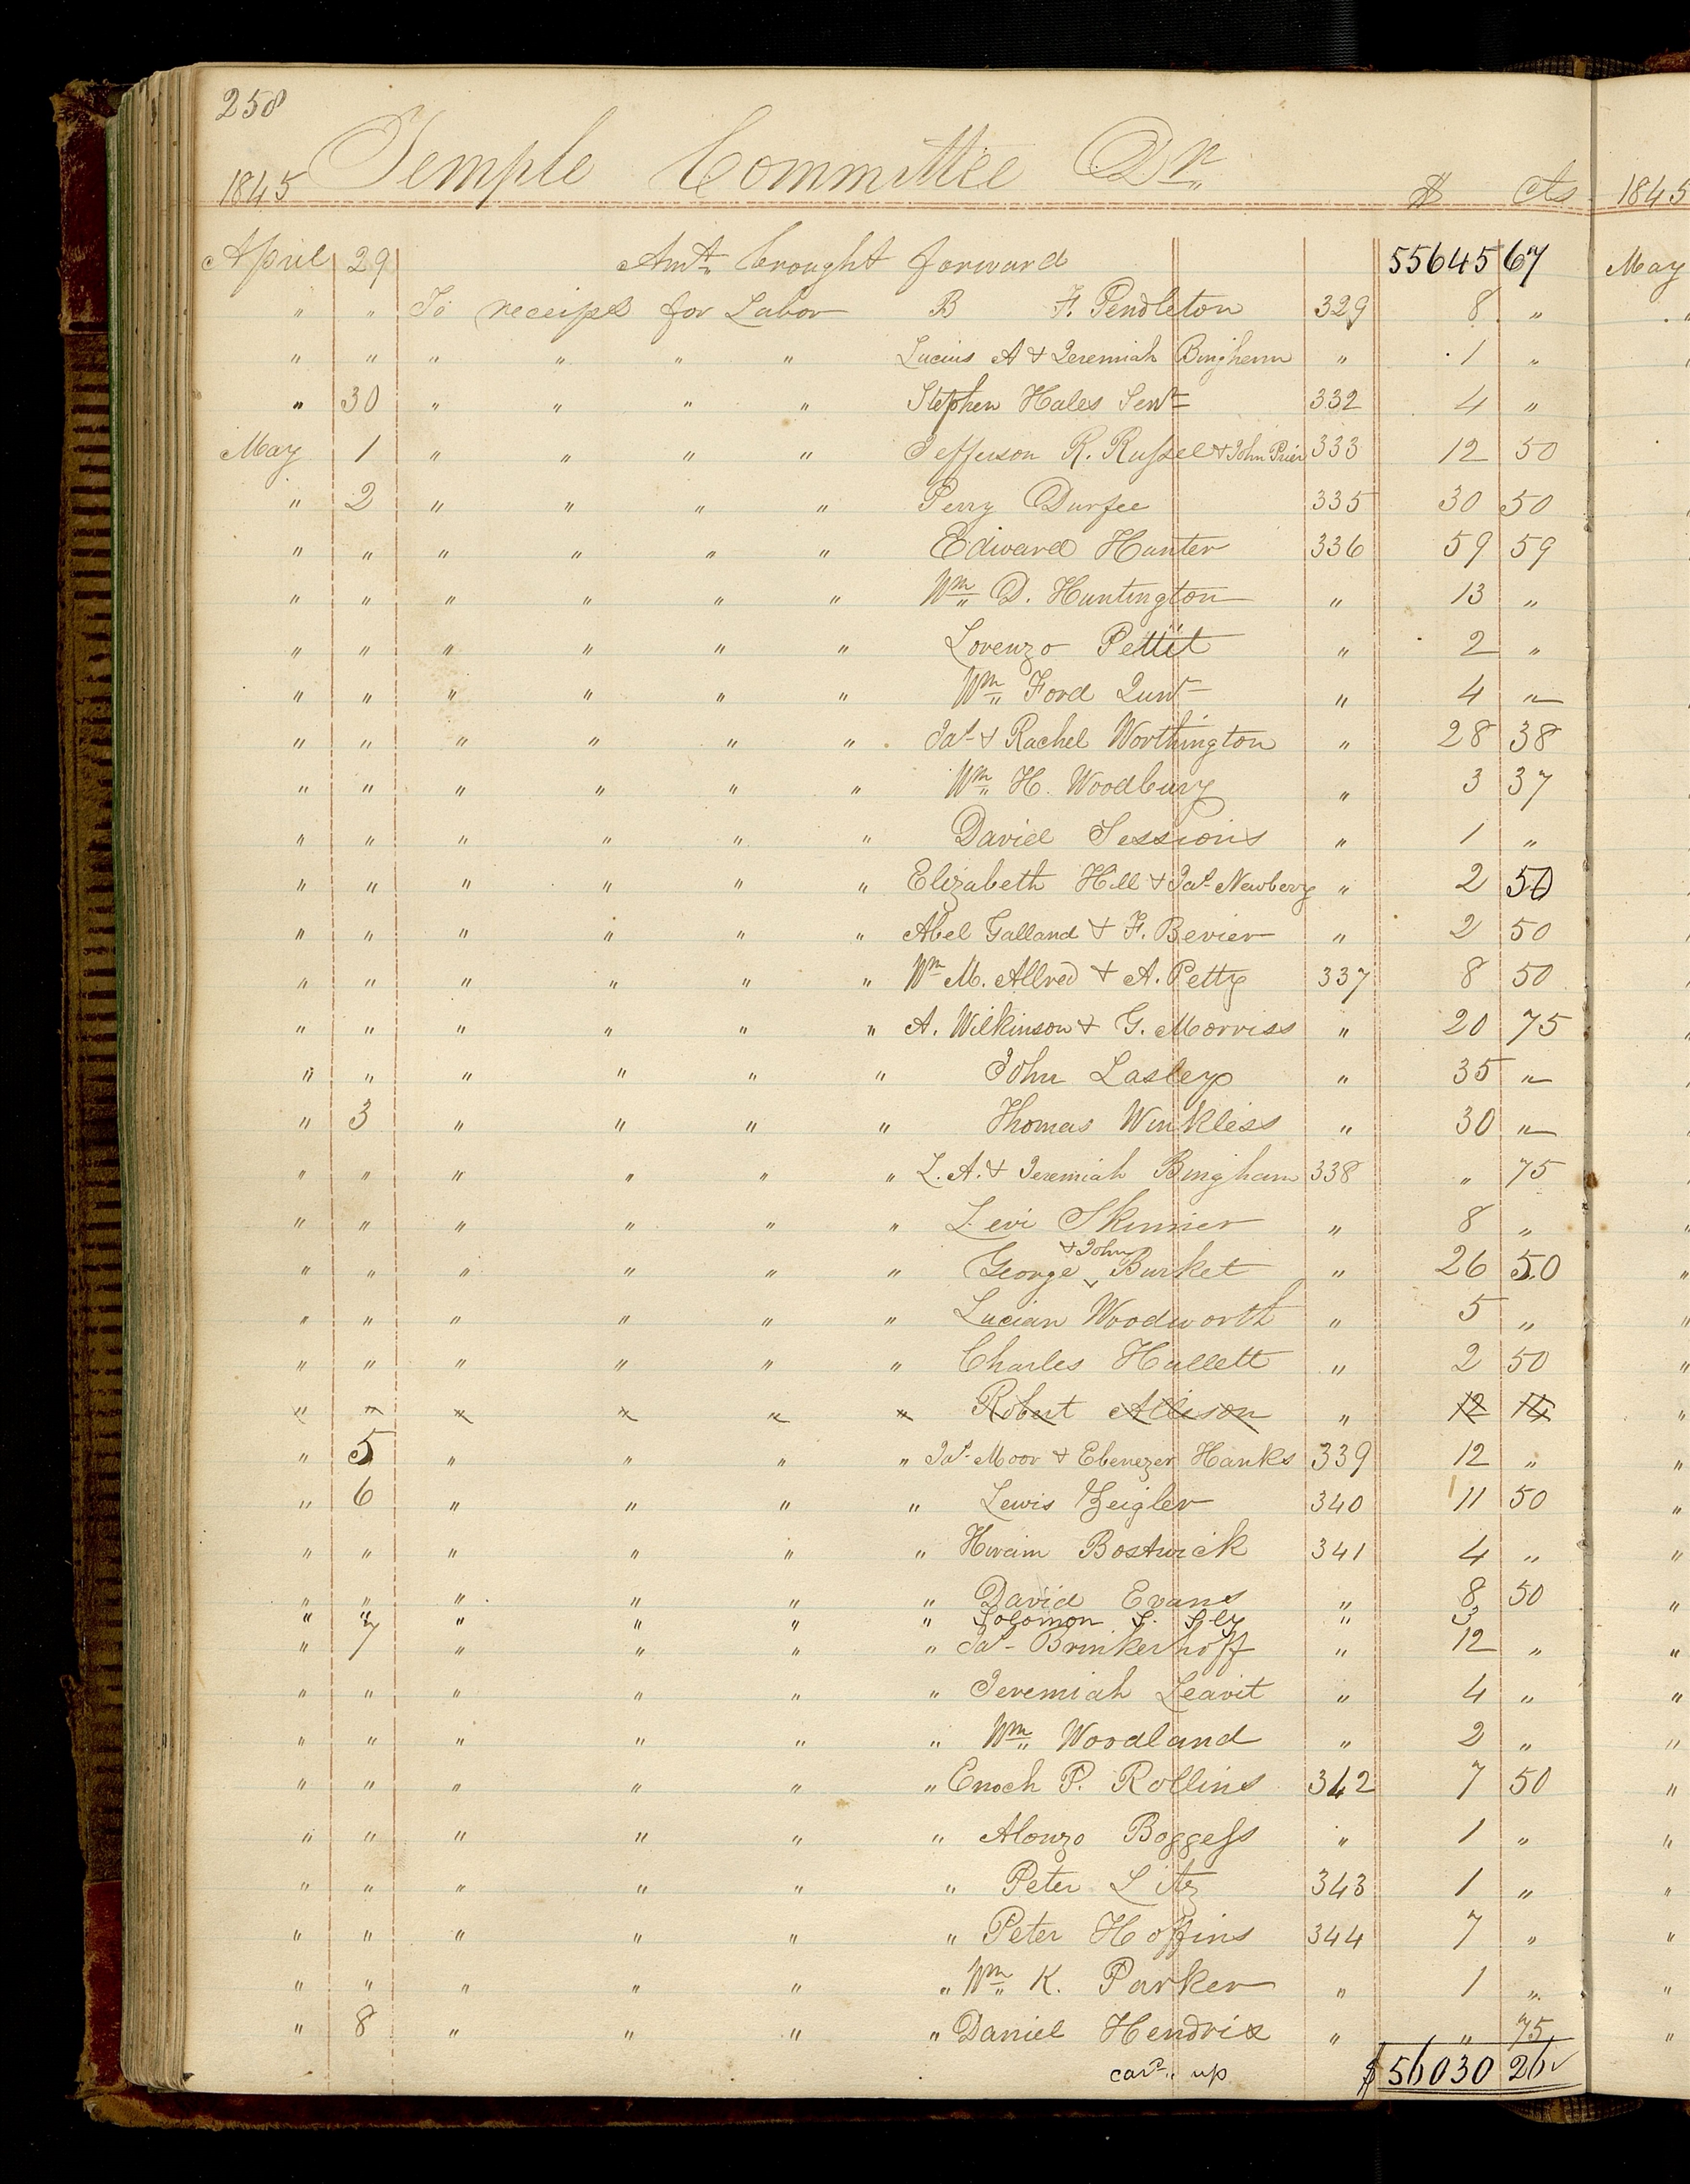 258
Temple Committee Dr.
1845 $ Cts 1845
April 29 Amt. brought forward 55645 67 May
" " To receipts for Labor B F. Pendleton 329 8 "
" " " " " " Lucius A & Jeremiah Bingham " 1 "
" 30 " " " " Stephen Hales Senr 332 4 "
May 1 " " " " Jefferson R. Russel & John Prier 333 12 50
" 2 " " " " Perry Durfee 335 30 50
" " " " " " Edward Hunter 336 59 59
" " " " " " Wm. D. Huntington " 13 "
" " " " " " Lorenzo Pettit " 2 "
" " " " " " Wm. Ford Junr " 4 "
" " " " " " Jas. & Rachel Worthington " 28 38
" " " " " " Wm. H. Woodbury " 3 37
" " " " " " David Sessions " 1 "
" " " " " " Elizabeth Hill & Jas. Newberry " 2 50
" " " " " " Abel Galland & F. Bevier " 2 50
" " " " " " Wm M. Allred & A. Petty 337 8 50
" " " " " " A. Wilkinson & G. Morriss " 20 75
" " " " " " John Lasley " 35 "
" 3 " " " " Thomas Winkless " 30 "
" " " " " " L. A. & Jeremiah Bingham 338 " 75
" " " " " " Levi Skinner " 8 "
" " " " " " George & John Burket " 26 50
" " " " " " Lucian Woodworth " 5 "
" " " " " " Charles Hullett " 2 50
" " " " " " Robert Allison " 12 14
" 5 " " " " Jas. Moor & Ebenezer Hanks 339 12 "
" 6 " " " " Lewis Zeigler 340 11 50
" " " " " " Hiram Bostwick 341 4 "
" " " " " " David Evans " 8 50
" " " " " " Solomon " 3
" 7 " " " " Jas. Brinkerhoff " 12 "
" " " " " " Jeremiah Leavit " 4 "
" " " " " " Wm. Woodland " 2 "
" " " " " " Enoch P. Rollins 342 7 50
" " " " " " Alonzo Boggess " 1 "
" " " " " " Peter Litz 343 1 "
" " " " " " Peter Hoffins 344 7 "
" " " " " " Wm. K. Parker " 1 "
" 8 " " " " Daniel Hendrix " " 75
card. up $56030 26